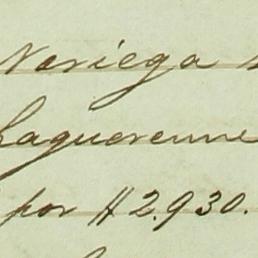 Noriega
Laguerenne
por $2.930.